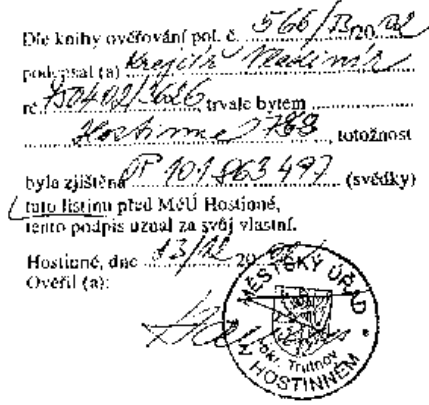 Dle knihy ověřování poř. č. 566/B 2002
podepsal (a) Krejčík Vladimír
rč. 750402/3626, trvale bytem
Hostinné 788, totožnost
byla zjištěna OP 101863497 (svědky)
tuto listinu před MěÚ Hostinné,
tento podpis uznal za svůj vlastní.
Hostinné, dne 13/12 20
Ověřil (a):
MĚSTSKÝ ÚŘAD
okr. Trutnov
V HOSTINNÉM